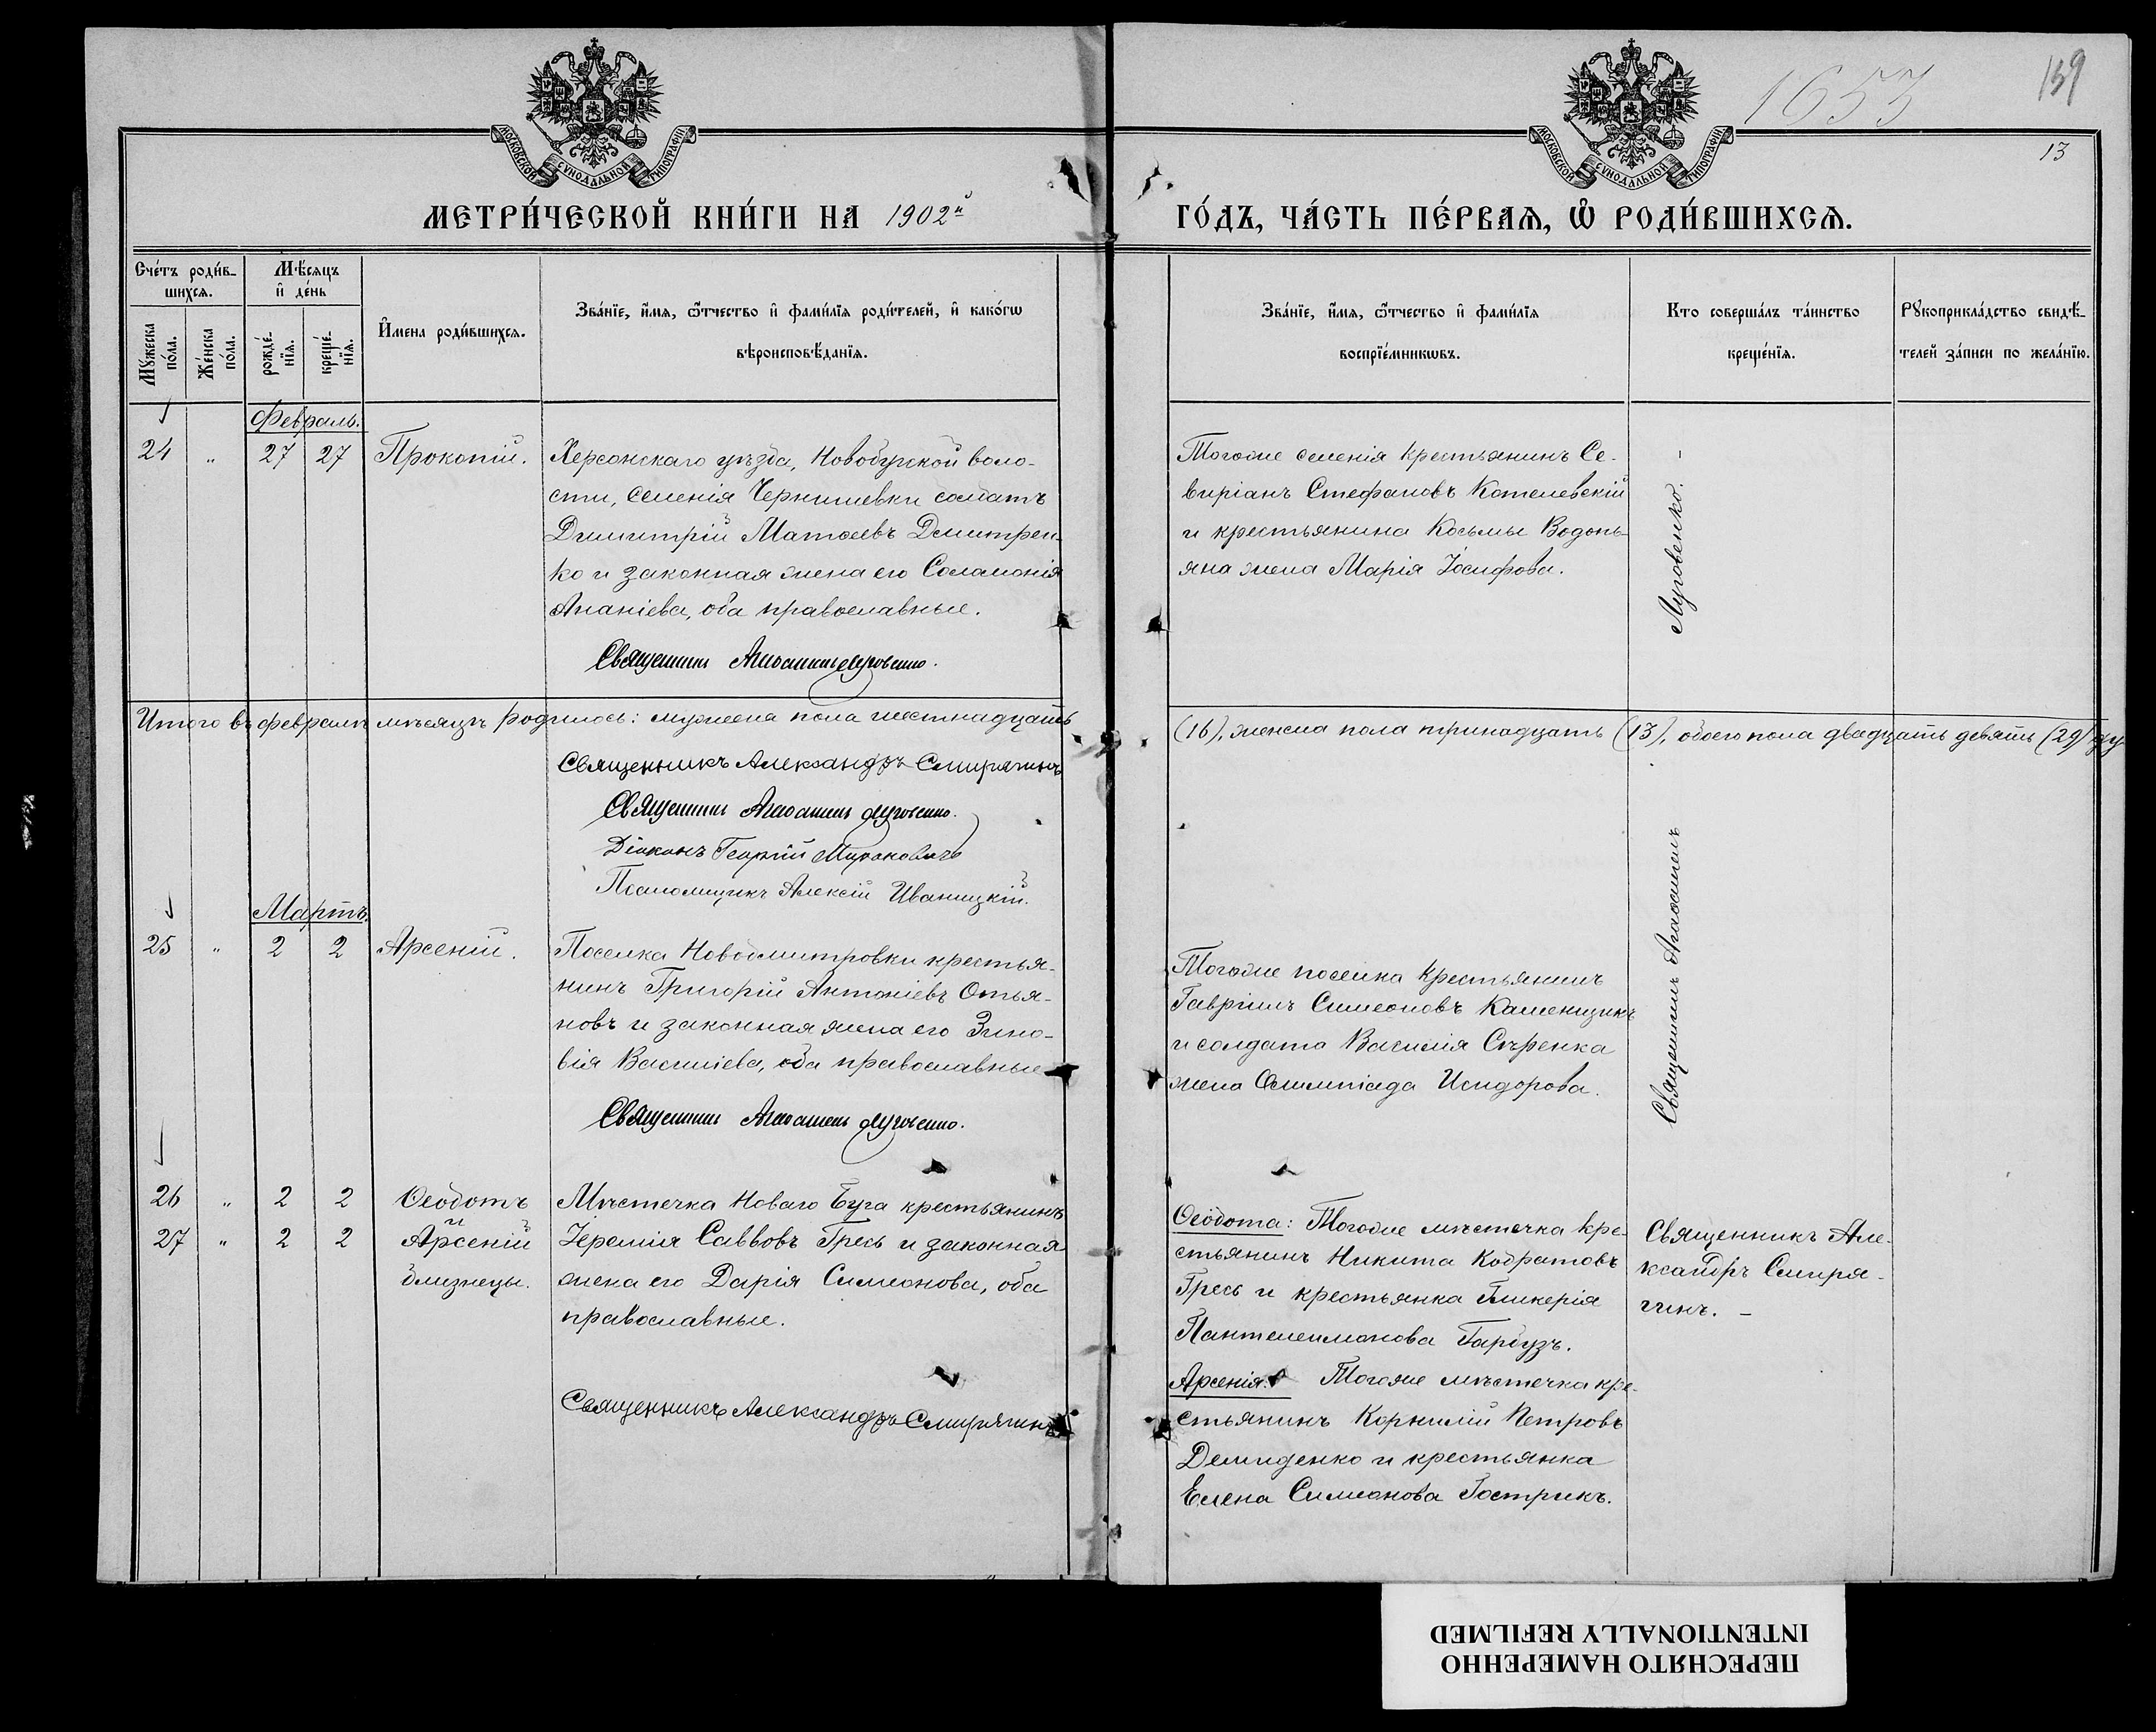 1653
159
13
МОСКОВСКОЙ СѴНОДАЛЬНОЙ ТИПОГРАФІИ
МОСКОВСКОЙ СѴНОДАЛЬНОЙ ТИПОГРАФІИ
МЕТРИ́ЧЕСКОЙ КНИ́ГИ НА 1902й
ГО́ДЪ, ЧА́СТЬ ПЕ́РВАѦ, Ѡ҆ РОДИ́ВШИХСѦ.
Сче́тъ роди́в-
шихсѧ.
Мѣ́сѧцъ
и҆ де́нь
Мꙋ́жеска
по́ла.
Же́нска
по́ла.
рожде́-
нїѧ.
креще́-
нїѧ.
И҆мена роди́вшихсѧ.
Зва́нїе, и҆́мѧ, ѻ҆́тчество и҆ фами́лїѧ роди́телей, и҆ како́гѡ
вѣроисповѣ́данїѧ.
Зва́нїе, и҆́мѧ, ѻ҆́тчество и҆ фами́лїѧ
воспрїе́мникѡвъ.
Кто соверша́лъ та́инство
креще́нїѧ.
Рꙋкоприкла́дство свидѣ́-
телей за́писи по жела́нїю.
Февраль.
24 " 27 27 Прокопій.
Херсонскаго уѣзда, Новобугской воло-
сти, селенія Чернишевки солдатъ
Димитрій Матѳеевъ Демитрен-
ко и законная жена его Соломонія
Ананіева, оба православные.
Священникъ Агаѳангелъ Луговенко.
Тогоже селенія крестьянинъ Се-
виріанъ Стефановъ Котелевскій
и крестьянина Косьмы Водопь-
яна жена Марія Іосифова.
Итого въ февралѣ мѣсяцѣ родилось: мужеска пола шестнадцать
(16), женска пола тринадцать (13), обоего пола двадцать девять (29) ду
Священникъ Александръ Смирягинъ
Священникъ Агаѳангелъ Луговенко.
Діаконъ Георгій Мураховичъ
Псаломщикъ Алексій Иваницкій.
Мартъ.
25 " 2 2 Арсеній.
Поселка Новодмитровки крестья-
нинъ Григорій Антоніевъ Отья-
новъ и законная жена его Зино-
вія Василіева, оба православные
Священникъ Агаѳангелъ Луговенко.
Тогоже поселка крестьянинъ
Гавріилъ Симеоновъ Каменщикъ
и солдата Василія Сѣренка
жена Олимпіада Исидорова.
Священникъ Агаѳангелъ Луговенко. –
26 " 2 2 Ѳеодотъ
и
27 " 2 2 Арсеній
близнецы.
Мѣстечка Новаго Буга крестьянинъ
Іеремія Саввовъ Гресь и законная
жена его Дарія Симеонова, оба
православные.
Священникъ Александръ Смирягинъ
Ѳеодота: Тогоже мѣстечка кре-
стьянинъ Никита Кодратовъ
Гресь и крестьянка Гликерія
Пантелеимонова Гарбузъ.
Арсенія: Тогоже мѣстечка кре-
стьянинъ Корнилій Петровъ
Демиденко и крестьянка
Елена Симеонова Гострикъ.
Священникъ Але-
ксандръ Смиря-
гинъ. –
ПЕРЕСНЯТО НАМЕРЕННО
INTENTIONALLY REFILMED